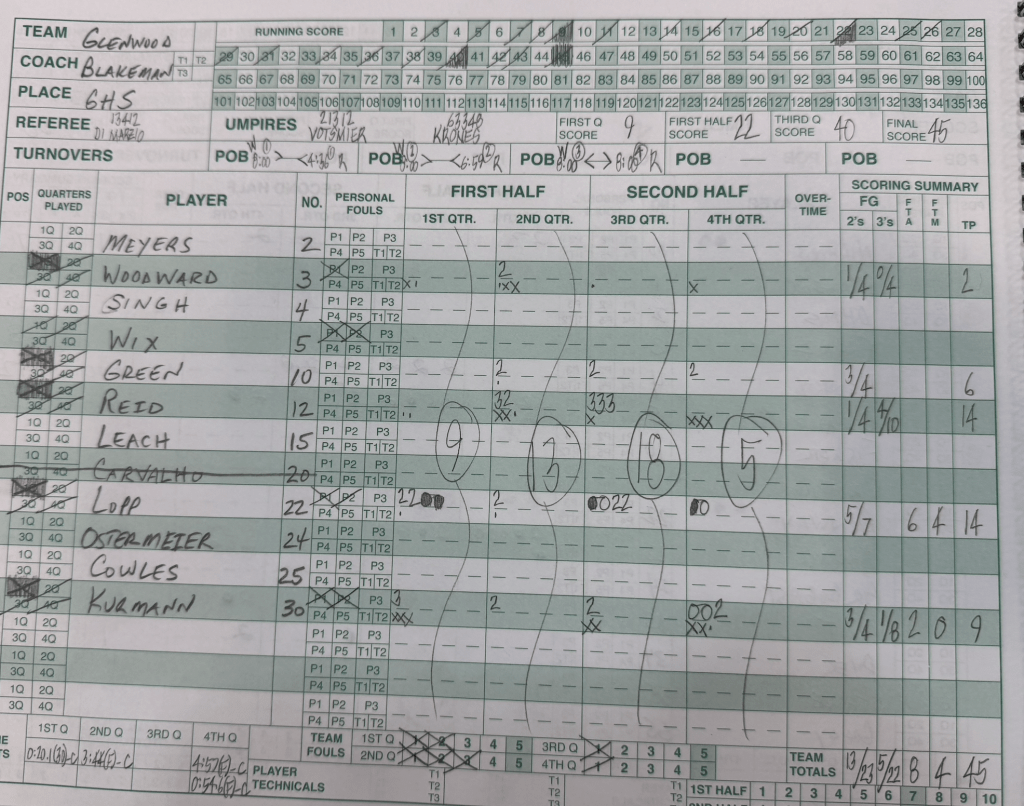 TEAM GLENWOOD RUNNING SCORE 1 2 3 4 5 6 7 8 9 10 11 12 13 14 15 16 17 18 19 20 21 22 23 24 25 26 27 28
COACH BLAKEMAN T1 T2 T3 29 30 31 32 33 34 35 36 37 38 39 40 41 42 43 44 45 46 47 48 49 50 51 52 53 54 55 56 57 58 59 60 61 62 63 64
65 66 67 68 69 70 71 72 73 74 75 76 77 78 79 80 81 82 83 84 85 86 87 88 89 90 91 92 93 94 95 96 97 98 99 100
PLACE GHS 101 102 103 104 105 106 107 108 109 110 111 112 113 114 115 116 117 118 119 120 121 122 123 124 125 126 127 128 129 130 131 132 133 134 135 136
REFEREE 13412 DI MARZIO UMPIRES 21312 VOTSMIER 63348 KRONES FIRST Q SCORE 9 FIRST HALF SCORE 22 THIRD Q SCORE 40 FINAL SCORE 45
TURNOVERS POB W 8:00 R POB W 8:00 R POB W 8:00 R POB — POB —
POS QUARTERS PLAYED PLAYER NO. PERSONAL FOULS FIRST HALF SECOND HALF OVER-TIME SCORING SUMMARY
1ST QTR. 2ND QTR. 3RD QTR. 4TH QTR. FG 2's 3's FTA FTM TP
1Q 2Q 3Q 4Q MEYERS 2 P1 P2 P3 P4 P5 T1 T2
WOODWARD 3 P1 P2 P3 P4 P5 T1 T2 2 1/4 0/4 2
1Q 2Q 3Q 4Q SINGH 4 P1 P2 P3 P4 P5 T1 T2
1Q 2Q 3Q 4Q WIX 5 P1 P2 P3 P4 P5 T1 T2
GREEN 10 P1 P2 P3 P4 P5 T1 T2 2 2 2 3/4 6
REID 12 P1 P2 P3 P4 P5 T1 T2 32 333 1/4 4/10 14
1Q 2Q 3Q 4Q LEACH 15 P1 P2 P3 P4 P5 T1 T2 9 13 18 5
1Q 2Q 3Q 4Q CARVALHO 20 P1 P2 P3 P4 P5 T1 T2
LOPP 22 P1 P2 P3 P4 P5 T1 T2 22 2 0022 0 5/7 6 4 14
1Q 2Q 3Q 4Q OSTERMEIER 24 P1 P2 P3 P4 P5 T1 T2
1Q 2Q 3Q 4Q COWLES 25 P1 P2 P3 P4 P5 T1 T2
KURMANN 30 P1 P2 P3 P4 P5 T1 T2 3 2 2 002 3/4 1/8 2 0 9
1Q 2Q 3Q 4Q P1 P2 P3 P4 P5 T1 T2
1Q 2Q 3Q 4Q P1 P2 P3 P4 P5 T1 T2
1Q 2Q 3Q 4Q P1 P2 P3 P4 P5 T1 T2
1ST Q 2ND Q 3RD Q 4TH Q TEAM FOULS 1ST Q 1 2 3 4 5 3RD Q 1 2 3 4 5
0:20.1(30)-C 3:44(F)-C 4:57(F)-C 2ND Q 1 2 3 4 5 4TH Q 1 2 3 4 5 TEAM TOTALS 13/23 5/22 8 4 45
0:54.6(F)-C PLAYER TECHNICALS T1 T2 T3 T1 T2 T3 T1 T2 1ST HALF 1 2 3 4 5 6 7 8 9 10